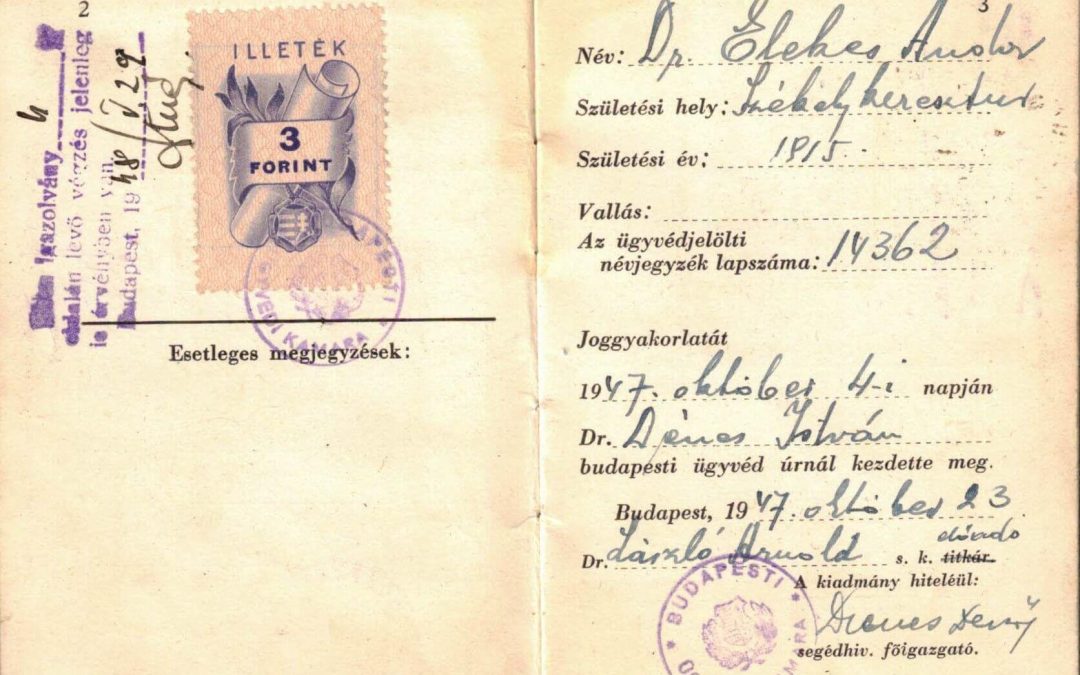 2
Ezen Igazolvány 4
oldalán levő végzés jelenleg
is érvényben van.
Budapest, 1948/V.29
ILLETÉK
3
FORINT
BUDAPESTI ÜGYVÉDI KAMARA
Esetleges megjegyzések:
3
Név: Dr. Elekes Andor
Születési hely: Székelykeresztur
Születési év: 1915.
Vallás:
Az ügyvédjelölti
névjegyzék lapszáma: 14362
Joggyakorlatát
1947. október 4-i napján
Dr. Dénes István
budapesti ügyvéd úrnál kezdette meg.
Budapest, 1947. október 23
előadó
Dr. László Arnold s. k. titkár.
A kiadmány hiteléül:
segédhiv. főigazgató.
* BUDAPESTI * KAMARA